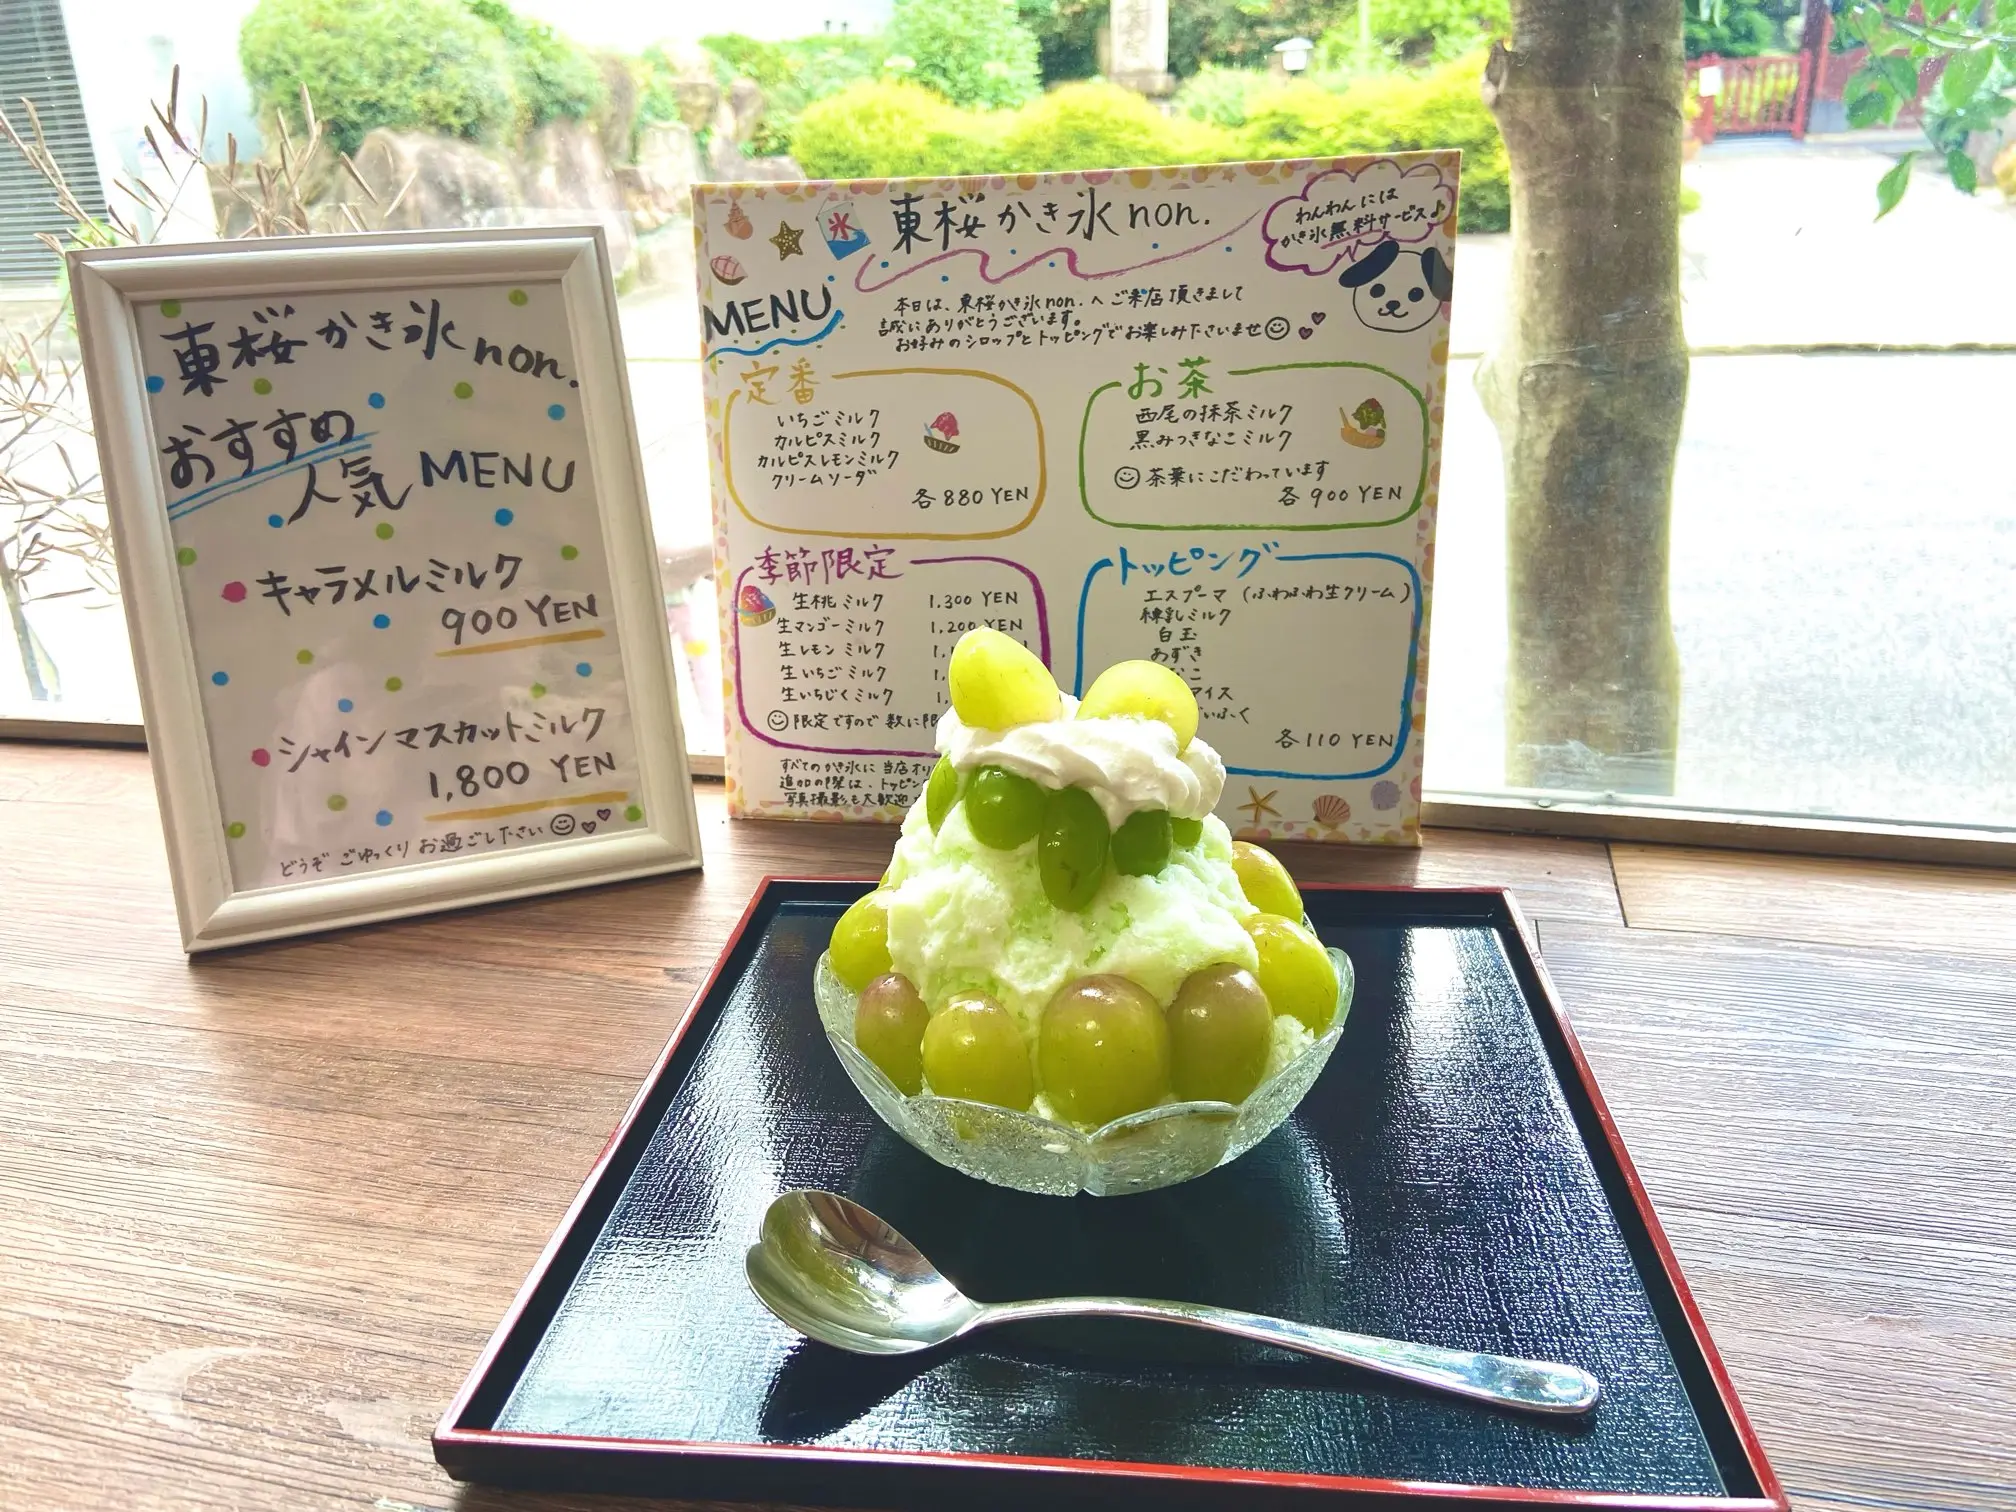 東桜かき氷non.
おすすめ
人気MENU
キャラメルミルク
900YEN
シャインマスカットミルク
1,800 YEN
どうぞ ごゆっくり お過ごし下さい
氷
東桜かき氷non.
わんわんには
かき氷無料サービス♪
MENU
本日は、東桜かき氷non.へご来店頂きまして
誠にありがとうございます。
お好みのシロップとトッピングでお楽しみ下さいませ
定番
いちごミルク
カルピスミルク
カルピスレモンミルク
クリームソーダ
各880YEN
お茶
西尾の抹茶ミルク
黒みつきなこミルク
茶葉にこだわっています
各900YEN
季節限定
生桃ミルク 1,300 YEN
生マンゴーミルク 1,200 YEN
生レモンミルク
生いちごミルク
生いちじくミルク
限定ですので数に限
トッピング
エスプーマ (ふわふわ生クリーム)
練乳ミルク
白玉
あずき
なこ
アイス
いふく
各110 YEN
すべてのかき氷に当店オリ
追加の際は、トッピン
写真撮影も大歓迎